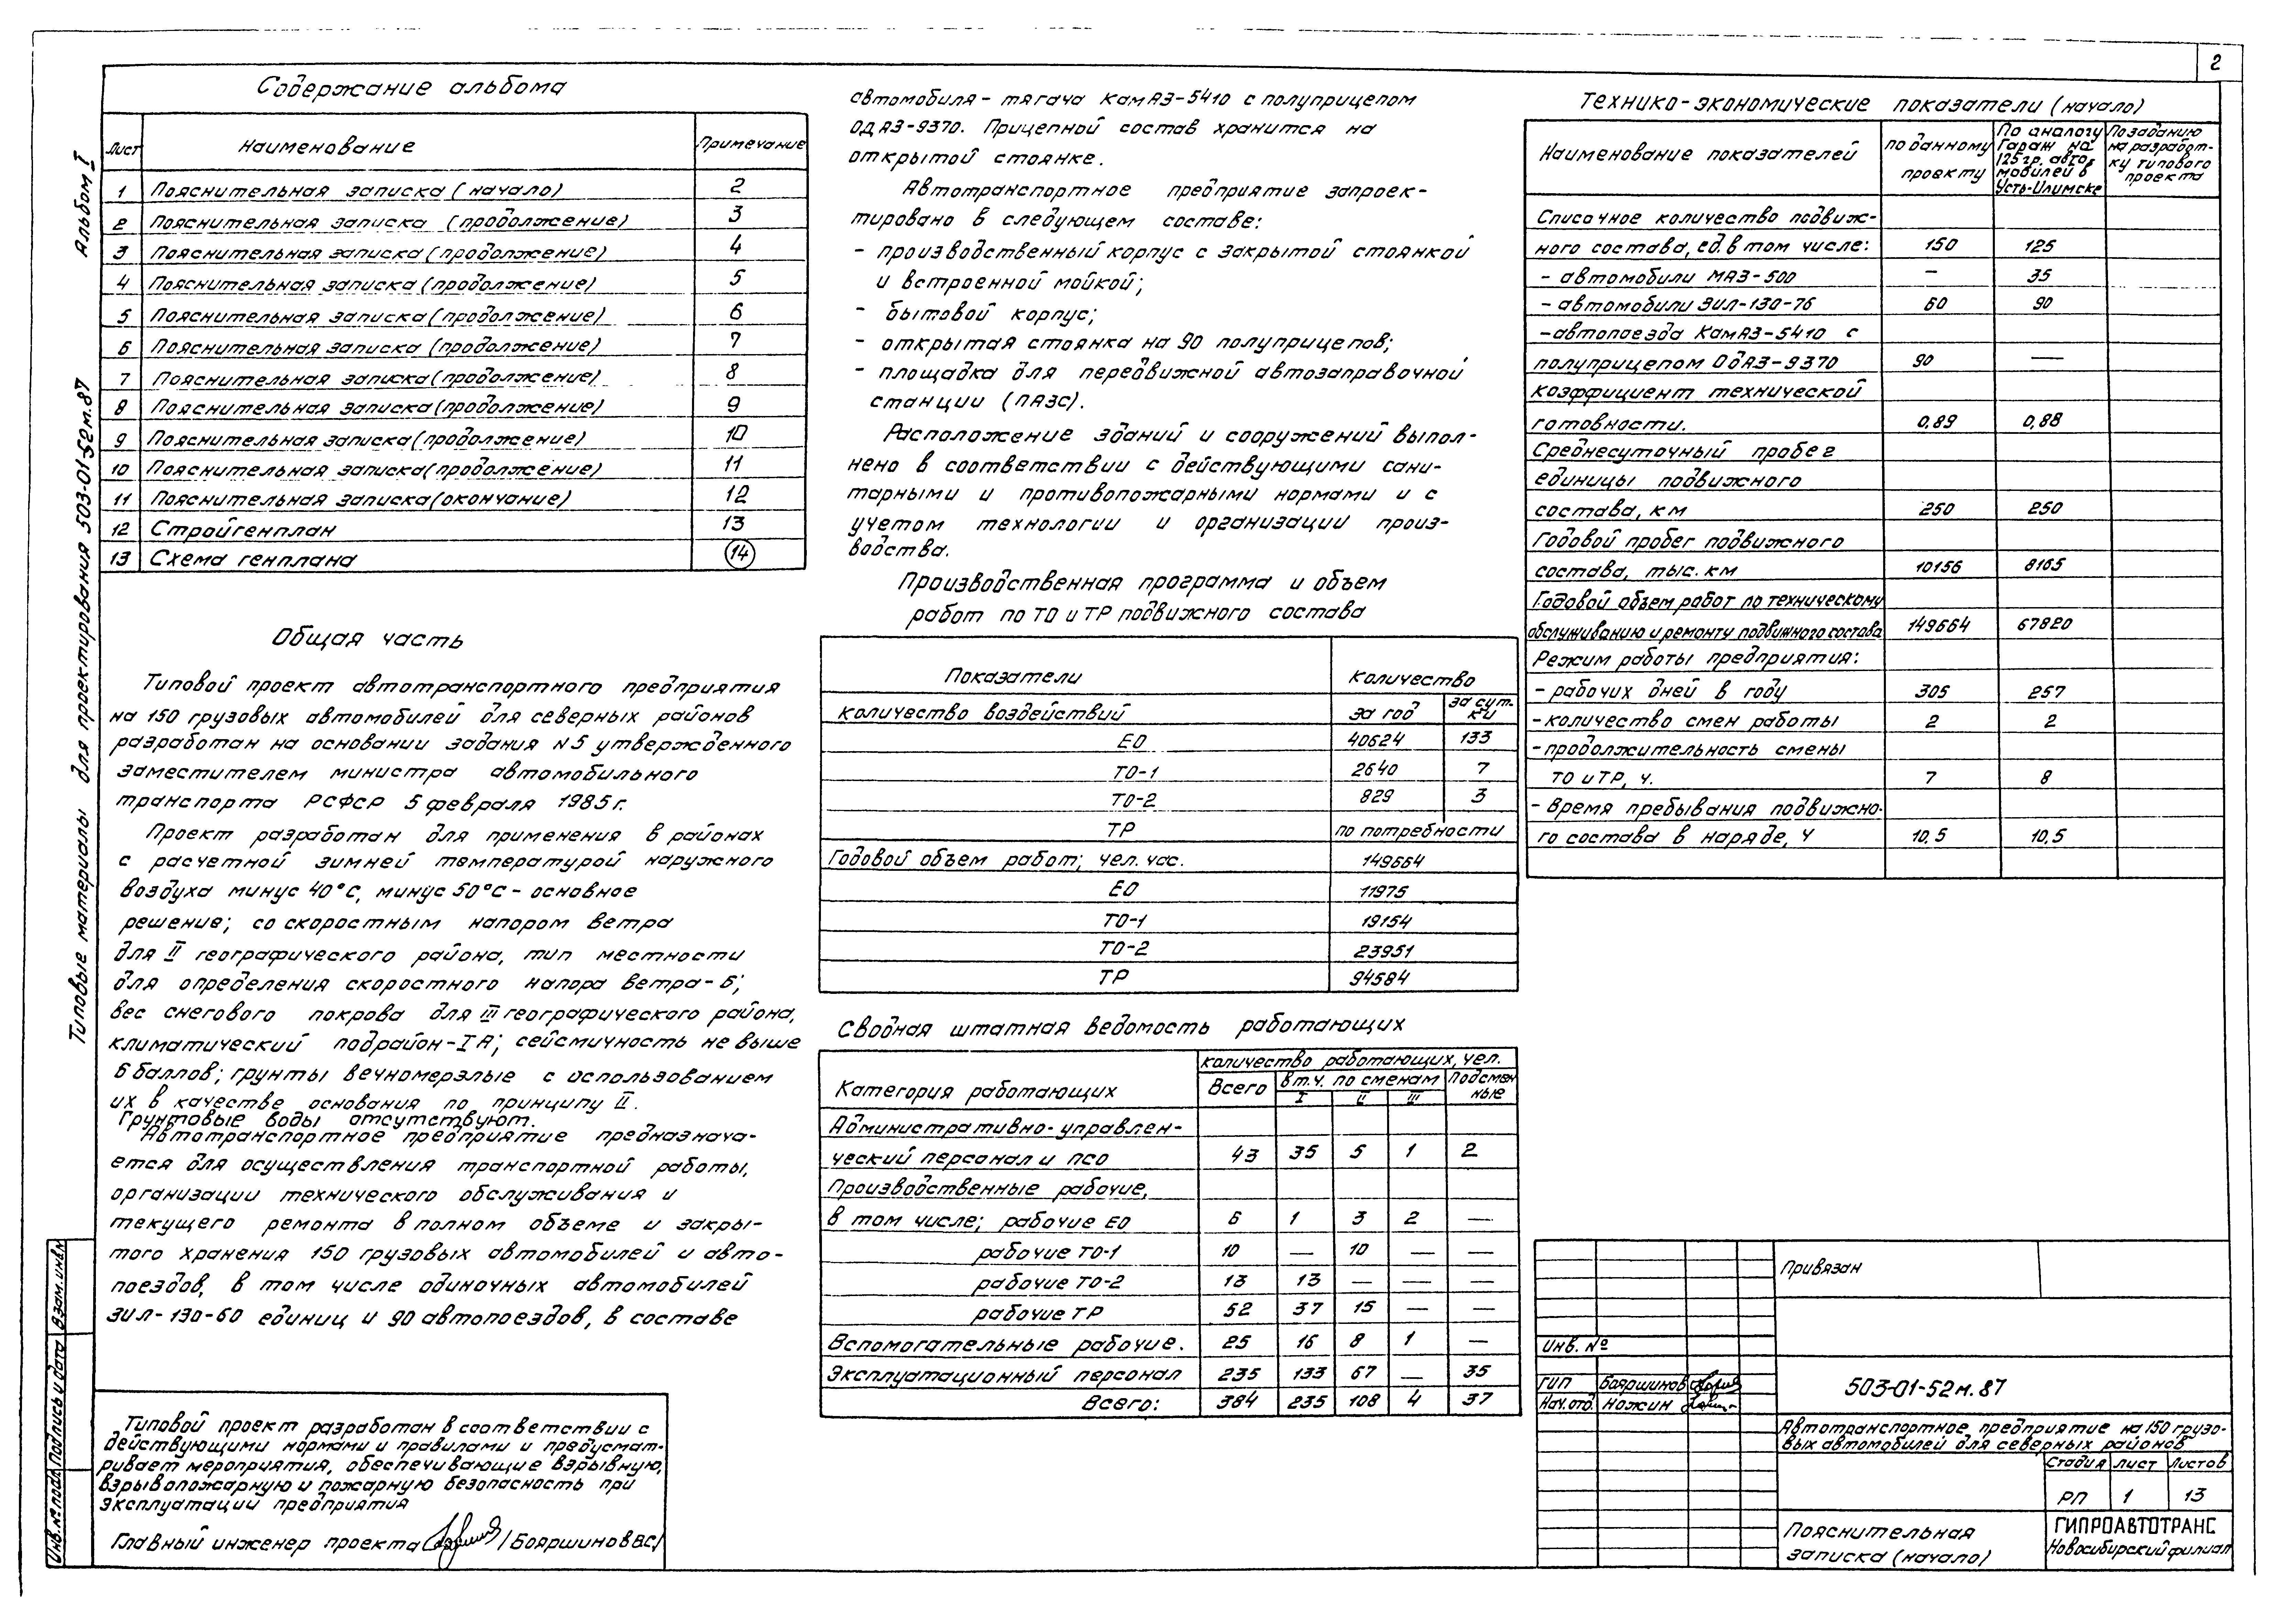 2
Альбом I
Типовые материалы для проектирования 503-01-52м.87
Содержание альбома
Лист Наименование Примечание
1 Пояснительная записка (начало) 2
2 Пояснительная записка (продолжение) 3
3 Пояснительная записка (продолжение) 4
4 Пояснительная записка (продолжение) 5
5 Пояснительная записка (продолжение) 6
6 Пояснительная записка (продолжение) 7
7 Пояснительная записка (продолжение) 8
8 Пояснительная записка (продолжение) 9
9 Пояснительная записка (продолжение) 10
10 Пояснительная записка (продолжение) 11
11 Пояснительная записка (окончание) 12
12 Стройгенплан 13
13 Схема генплана 14
Общая часть
Типовой проект автотранспортного предприятия
на 150 грузовых автомобилей для северных районов
разработан на основании задания N5 утвержденного
заместителем министра автомобильного
транспорта РСФСР 5 февраля 1985г.
Проект разработан для применения в районах
с расчетной зимней температурой наружного
воздуха минус 40°С, минус 50°С - основное
решение; со скоростным напором ветра
для II географического района, тип местности
для определения скоростного напора ветра - Б;
вес снегового покрова для III географического района,
климатический подрайон - IА; сейсмичность не выше
6 баллов; грунты вечномерзлые с использованием
их в качестве основания по принципу II.
Грунтовые воды отсутствуют.
Автотранспортное предприятие предназнача-
ется для осуществления транспортной работы,
организации технического обслуживания и
текущего ремонта в полном объеме и закры-
того хранения 150 грузовых автомобилей и авто-
поездов, в том числе одиночных автомобилей
ЗИЛ-130-60 единиц и 90 автопоездов, в составе
Типовой проект разработан в соответствии с
действующими нормами и правилами и предусмат-
ривает мероприятия, обеспечивающие взрывную,
взрывопожарную и пожарную безопасность при
эксплуатации предприятия
Главный инженер проекта /Бояршинов В.С./
Инв.№ подл. Подпись и дата Взам.инв.№
автомобиля - тягача КамАЗ-5410 с полуприцепом
ОдАЗ-9370. Прицепной состав хранится на
открытой стоянке.
Автотранспортное предприятие запроек-
тировано в следующем составе:
- производственный корпус с закрытой стоянкой
и встроенной мойкой;
- бытовой корпус;
- открытая стоянка на 90 полуприцепов;
- площадка для передвижной автозаправочной
станции (ПАЗС).
Расположение зданий и сооружений выпол-
нено в соответствии с действующими сани-
тарными и противопожарными нормами и с
учетом технологии и организации произ-
водства.
Производственная программа и объем
работ по ТО и ТР подвижного состава
Показатели Количество
Количество воздействий за год за сут-
ки
ЕО 40624 133
ТО-1 2640 7
ТО-2 829 3
ТР по потребности
Годовой объем работ; чел. час. 149664
ЕО 11975
ТО-1 19154
ТО-2 23951
ТР 94584
Сводная штатная ведомость работающих
Категория работающих Количество работающих, чел.
Всего в т.ч. по сменам Подсмен
ные
I II III
Административно-управлен-
ческий персонал и ПСО 43 35 5 1 2
Производственные рабочие,
в том числе; рабочие ЕО 6 1 3 2 —
рабочие ТО-1 10 — 10 — —
рабочие ТО-2 13 13 — — —
рабочие ТР 52 37 15 — —
Вспомогательные рабочие. 25 16 8 1 —
Эксплуатационный персонал 235 133 67 — 35
Всего: 384 235 108 4 37
Технико-экономические показатели (начало)
Наименование показателей
по данному
проекту
По аналогу
Гараж на
125 гр. авто-
мобилей в
Усть-Илимске
По заданию
на разработ-
ку типового
проекта
Списочное количество подвиж-
ного состава, ед. в том числе: 150 125
- автомобили МАЗ-500 — 35
- автомобили ЗИЛ-130-76 60 90
- автопоезда КамАЗ-5410 с
полуприцепом ОдАЗ-9370 90 —
Коэффициент технической
готовности. 0,89 0,88
Среднесуточный пробег
единицы подвижного
состава, км 250 250
Годовой пробег подвижного
состава, тыс. км 10156 8165
Годовой объем работ по техническому
обслуживанию и ремонту подвижного состава 149664 67820
Режим работы предприятия:
- рабочих дней в году 305 257
- количество смен работы 2 2
- продолжительность смены
ТО и ТР, ч. 7 8
- время пребывания подвижно-
го состава в наряде, ч 10,5 10,5
Привязан
Инв. №
ГИП Бояршинов
Нач.отд. Ножин
503-01-52м.87
Автотранспортное предприятие на 150 грузо-
вых автомобилей для северных районов
Стадия Лист Листов
РП 1 13
Пояснительная
записка (начало)
ГИПРОАВТОТРАНС
Новосибирский филиал